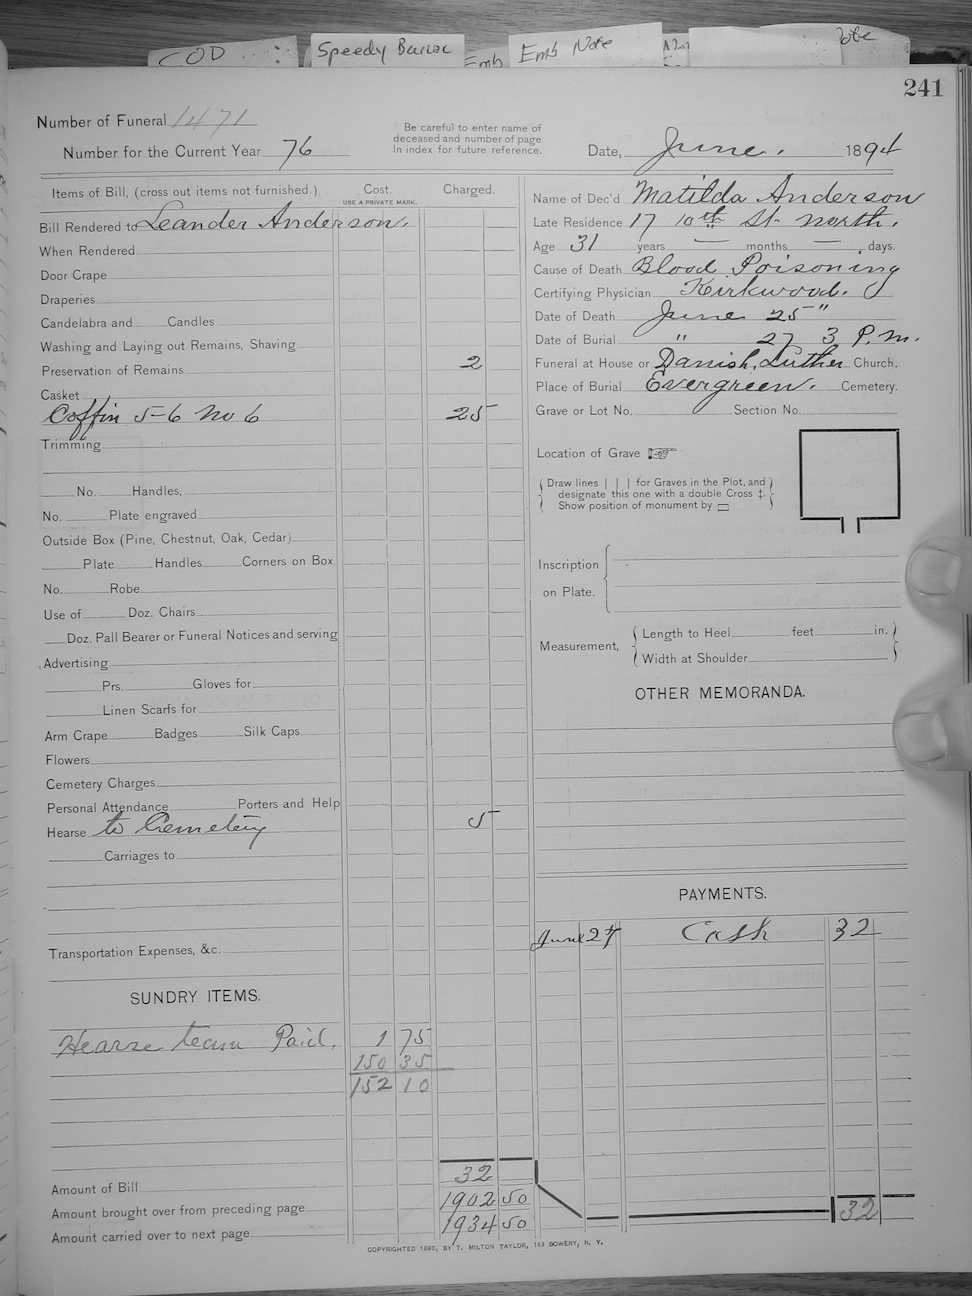 COD
Speedy Burial
Emb
Emb Note
241
Number of Funeral 1471
Number for the Current Year 76
Be careful to enter name of
deceased and number of page
in index for future reference.
Date, June. 1894
Items of Bill, (cross out items not furnished.) Cost. Charged.
USE A PRIVATE MARK.
Bill Rendered to Leander Anderson.
When Rendered
Door Crape
Draperies
Candelabra and Candles
Washing and Laying out Remains, Shaving
Preservation of Remains 2
Casket
Coffin 5-6 No 6 25
Trimming
No. Handles,
No. Plate engraved
Outside Box (Pine, Chestnut, Oak, Cedar)
Plate Handles Corners on Box.
No. Robe
Use of Doz. Chairs
Doz. Pall Bearer or Funeral Notices and serving
Advertising
Prs. Gloves for
Linen Scarfs for
Arm Crape Badges Silk Caps
Flowers
Cemetery Charges
Personal Attendance Porters and Help
Hearse to Cemetery 5
Carriages to
Transportation Expenses, &c.
SUNDRY ITEMS.
Hearse team Paid. 1 75
150 35
152 10
32
Amount of Bill
1902 50
Amount brought over from preceding page
1934 50
Amount carried over to next page
Name of Dec'd Matilda Anderson
Late Residence 17 10th St. North.
Age 31 years — months — days.
Cause of Death Blood Poisoning
Certifying Physician Kirkwood.
Date of Death June 25"
Date of Burial " 27 3 P.M.
Funeral at House or Danish, Luther Church.
Place of Burial Evergreen. Cemetery.
Grave or Lot No. Section No.
Location of Grave
Draw lines | | | for Graves in the Plot, and
designate this one with a double Cross ‡.
Show position of monument by ▭
Inscription
on Plate.
Measurement, Length to Heel feet in.
Width at Shoulder
OTHER MEMORANDA.
PAYMENTS.
June 27 Cash 32
32
COPYRIGHTED 1890, BY T. MILTON TAYLOR, 163 BOWERY, N. Y.